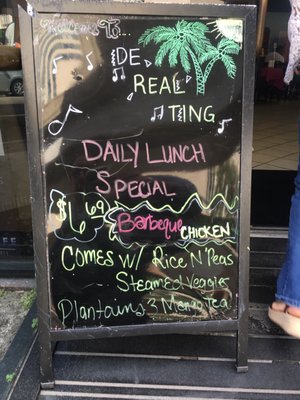 Welcome To...
DE
REAL
TING
DAILY LUNCH
SPECIAL
$6.69
Barbeque
CHICKEN
COMES W/ RICE N' PEAS
STEAMED VEGGIES
PLANTAINS & MANGO TEA!